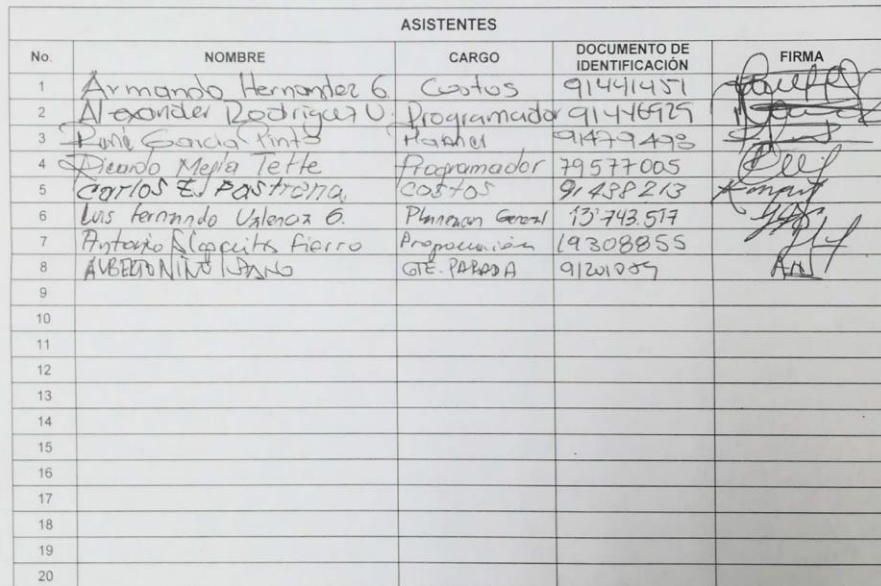 ASISTENTES
No. NOMBRE CARGO DOCUMENTO DE IDENTIFICACIÓN FIRMA
1 Armando Hernandez G. Costos 91441451
2 Alexander Rodriguez U. Programador 91446929
3 René Garcia Pinto 91479498
4 Ricardo Mejia Tette Programador 79577005
5 Carlos E. Pastrana costos 91438213
6 Luis fernando G. General 13'743.517
7 Antonio Fierro 19308855
8 ALBERTO NIÑO GTE. PARADA
9
10
11
12
13
14
15
16
17
18
19
20